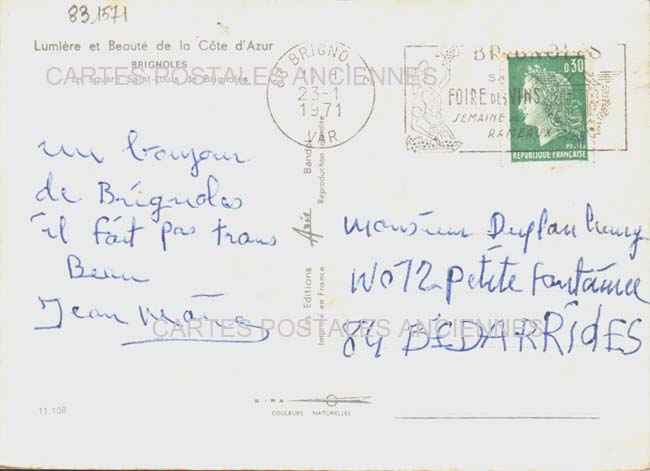 83 1571
Lumière et Beauté de la Côte d'Azur
BRIGNOLES
Le square Saint-Louis de Brignoles
CARTES POSTALES ANCIENNES
83 BRIGNOLES
23-1
1971
VAR
BRIGNOLES
SA
FOIRE DES VINS
SEMAINE DES
RAMEAUX
0,30
POSTES
REPUBLIQUE FRANÇAISE
un bonjour
de Brignoles
il fait pas trans
Beau
Jean
Monsieur
petite fontaine
84 BEDARRIDES
CARTES POSTALES ANCIENNES
Les Editions Aris Bandol
Imprimé en France Reproduction interdite
11.108
COULEURS NATURELLES